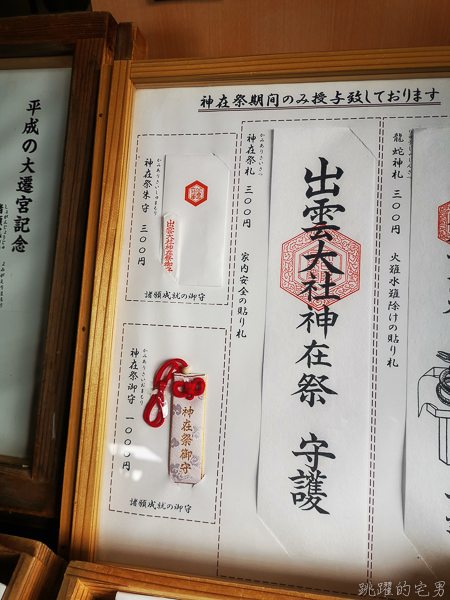 神在祭期間のみ授与致しております
龍蛇神札 三〇〇円
火難水難除けの貼り札
かみありさいさつ
神在祭札 三〇〇円
家内安全の貼り札
出雲大社神在祭 守護
神在祭朱守 三〇〇円
諸願成就の御守
かみありさいおまもり
神在祭御守 一〇〇〇円
神在祭御守
諸願成就の御守
平成の大遷宮記念
跳躍的宅男